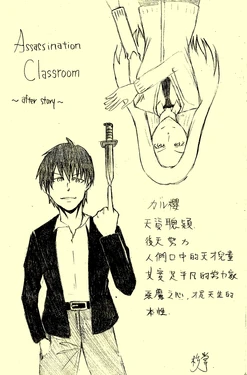 Assassination
Classroom
~ after story ~
カル櫻
天資聰穎
後天努力
人們口中的天才兒童
其實是平凡的努力家
惡魔之心,才是天生的
本性.